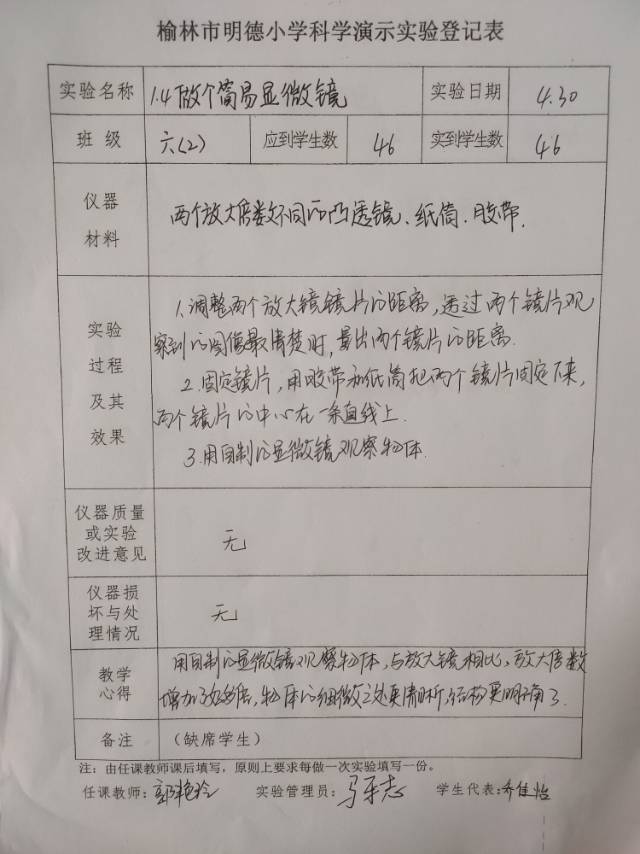 榆林市明德小学科学演示实验登记表
实验名称 1.4做个简易显微镜 实验日期 4.30
班级 六(2) 应到学生数 46 实到学生数 46
仪器
材料
两个放大倍数不同的凸透镜、纸筒、胶带.
实验
过程
及其
效果
1.调整两个放大镜镜片的距离,透过两个镜片观
察到的图像最清楚时,量出两个镜片的距离.
2.固定镜片,用胶带和纸筒把两个镜片固定下来,
两个镜片的中心在一条直线上.
3.用自制的显微镜观察物体.
仪器质量
或实验
改进意见
无
仪器损
坏与处
理情况
无
教学
心得
用自制的显微镜观察物体,与放大镜相比,放大倍数
增加了好多倍,物体的细微之处更清晰,结构更明确了.
备注 (缺席学生)
注:由任课教师课后填写,原则上要求每做一次实验填写一份。
任课教师:郭艳玲 实验管理员:马 志 学生代表:乔佳怡